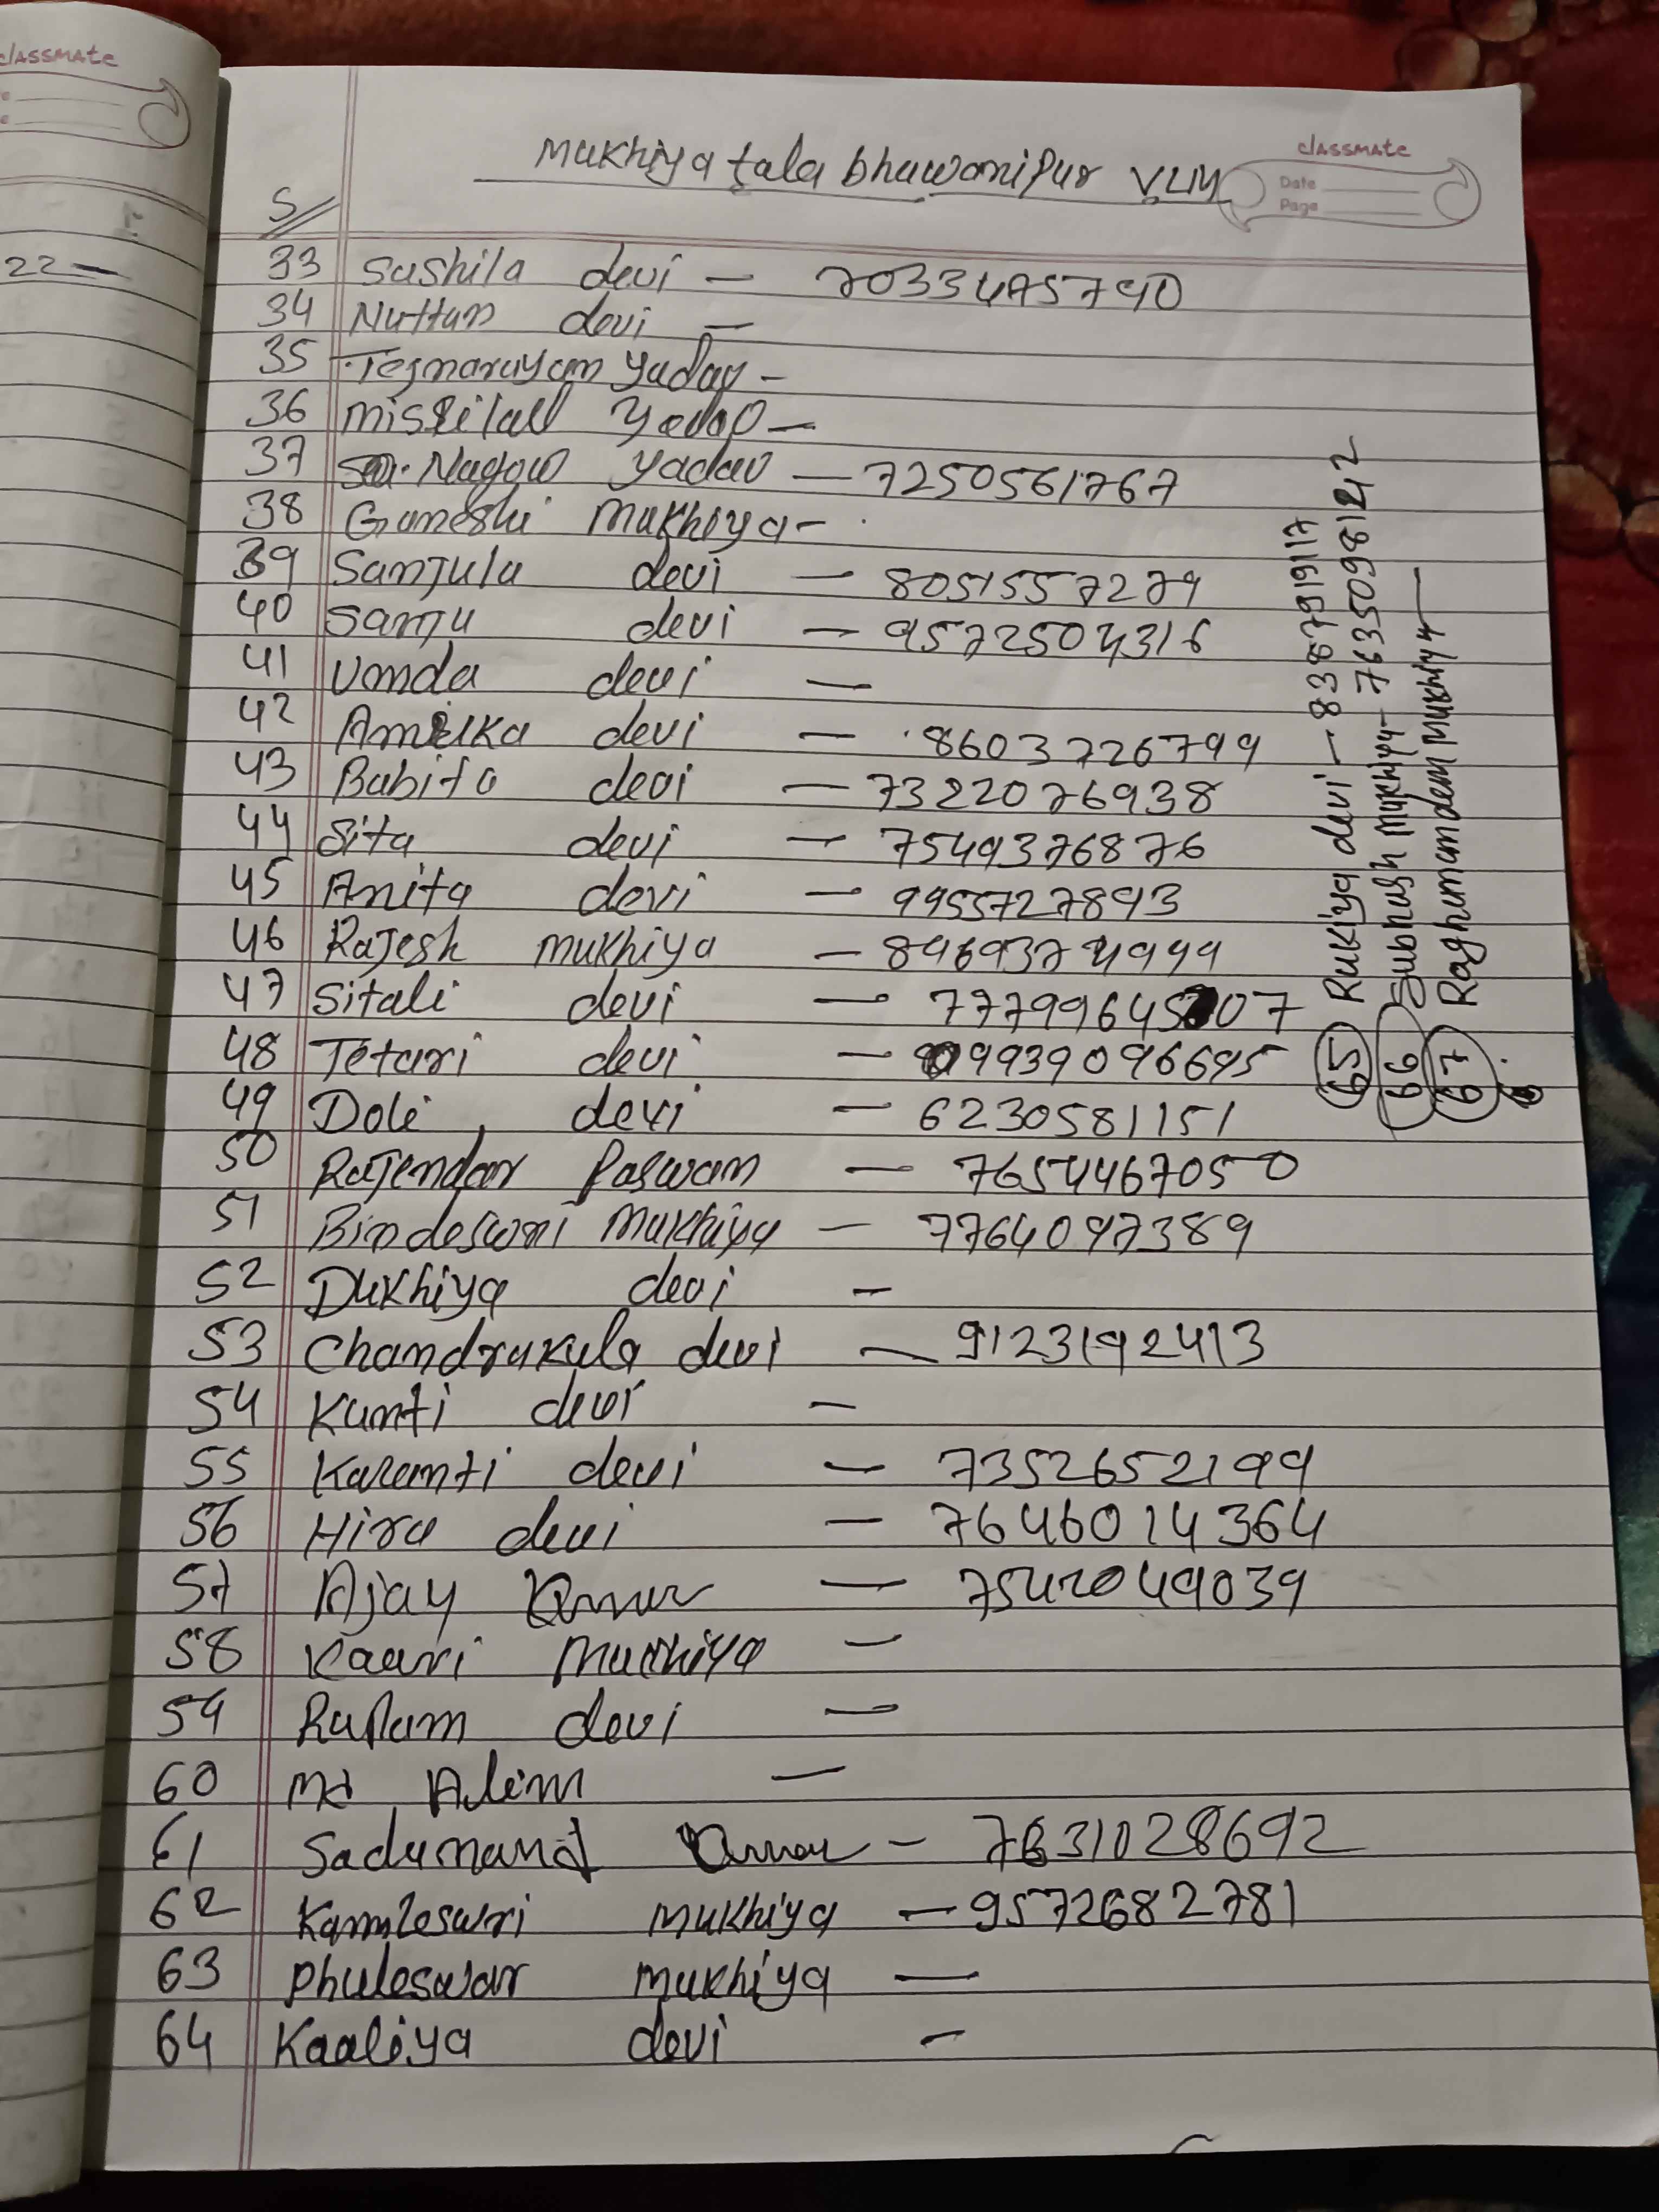 classmate
classmate
Date
Page
Mukhiya tala bhawanipur VLM
S//
22 —
33 Sushila devi — 7033475740
34 Nuttan devi —
35 Tejnarayan Yadav -
36 Misrilall Yadav —
37 Nagow Yadav — 7250561767
38 Ganeshi Mukhiya -
39 Sanjula devi — 8051557279
40 Sanju devi — 9572504316
41 Umda devi —
42 devi — 8603726799
43 Babita devi — 7322076938
44 Sita devi — 7549376876
45 Anita devi — 9955727893
46 Rajesh Mukhiya — 8969374999
47 Sitali devi —
48 Tetari devi —
49 Doli devi — 6230581151
50 Rajendar Paswan — 7654467050
51 Bindeswri Mukhiya — 7764097389
52 Dukhiya devi —
53 Chandrakala devi — 9123192413
54 Kanti devi —
55 Karanti devi — 7352652199
56 Hira devi — 7646014364
57 Ajay Kumar — 7542049039
58 Kaari Mukhiya —
59 Rupam devi —
60 Md Alim —
61 Sadanand Kumar — 7631028692
62 Kamleswri Mukhiya — 9572682781
63 Phuleswar Mukhiya —
64 Kaaliya devi —
65 Rukiya devi — 8387919117
66 Subhash Mukhiya - 7635098142
67 Raghunandem Mukhiya —